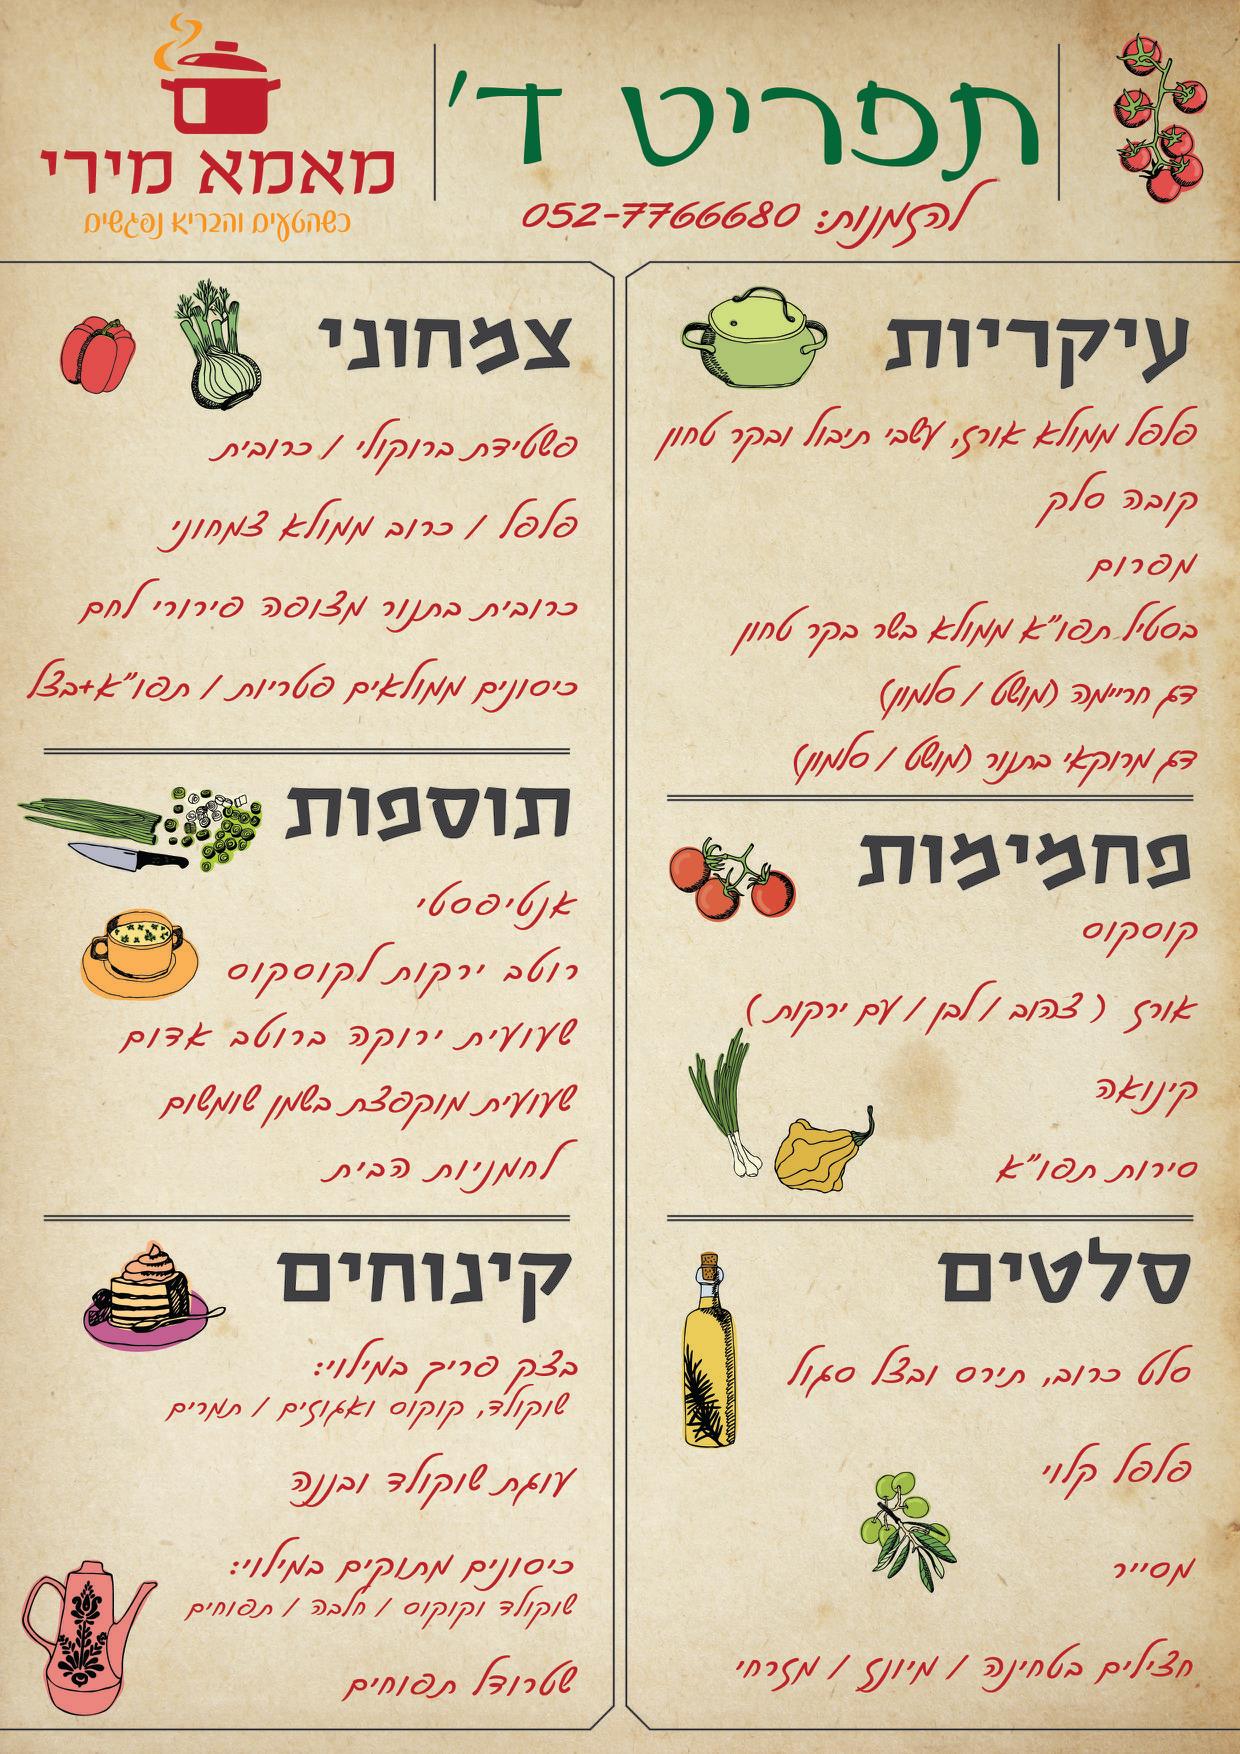 מאמא מירי
כשהטעים והבריא נפגשים
תפריט ד'
להזמנות: 052-7766680
עיקריות
פלפל ממולא אורז, עשבי תיבול ובקר טחון
קובה סלק
מפרום
בסטיל תפו"א ממולא בשר בקר טחון
דג חריימה (מושט / סלמון)
דג מרוקאי בתנור (מושט / סלמון)
פחמימות
קוסקוס
אורז (צהוב / לבן / עם ירקות)
קינואה
סירות תפו"א
סלטים
סלט כרוב, תירס ובצל סגול
פלפל קלוי
מסייר
חצילים בטחינה / מיונז / מזרחי
צמחוני
פשטידת ברוקולי / כרובית
פלפל / כרוב ממולא צמחוני
כרובית בתנור מצופה פירורי לחם
כיסונים ממולאים פטריות / תפו"א+בצל
תוספות
אנטיפסטי
רוטב ירקות לקוסקוס
שעועית ירוקה ברוטב אדום
שעועית מוקפצת בשמן שומשום
לחמניות הבית
קינוחים
בצק פריך במילוי:
שוקולד, קוקוס ואגוזים / תמרים
עוגת שוקולד ובננה
כיסונים מתוקים במילוי:
שוקולד וקוקוס / חלבה / תפוחים
שטרודל תפוחים